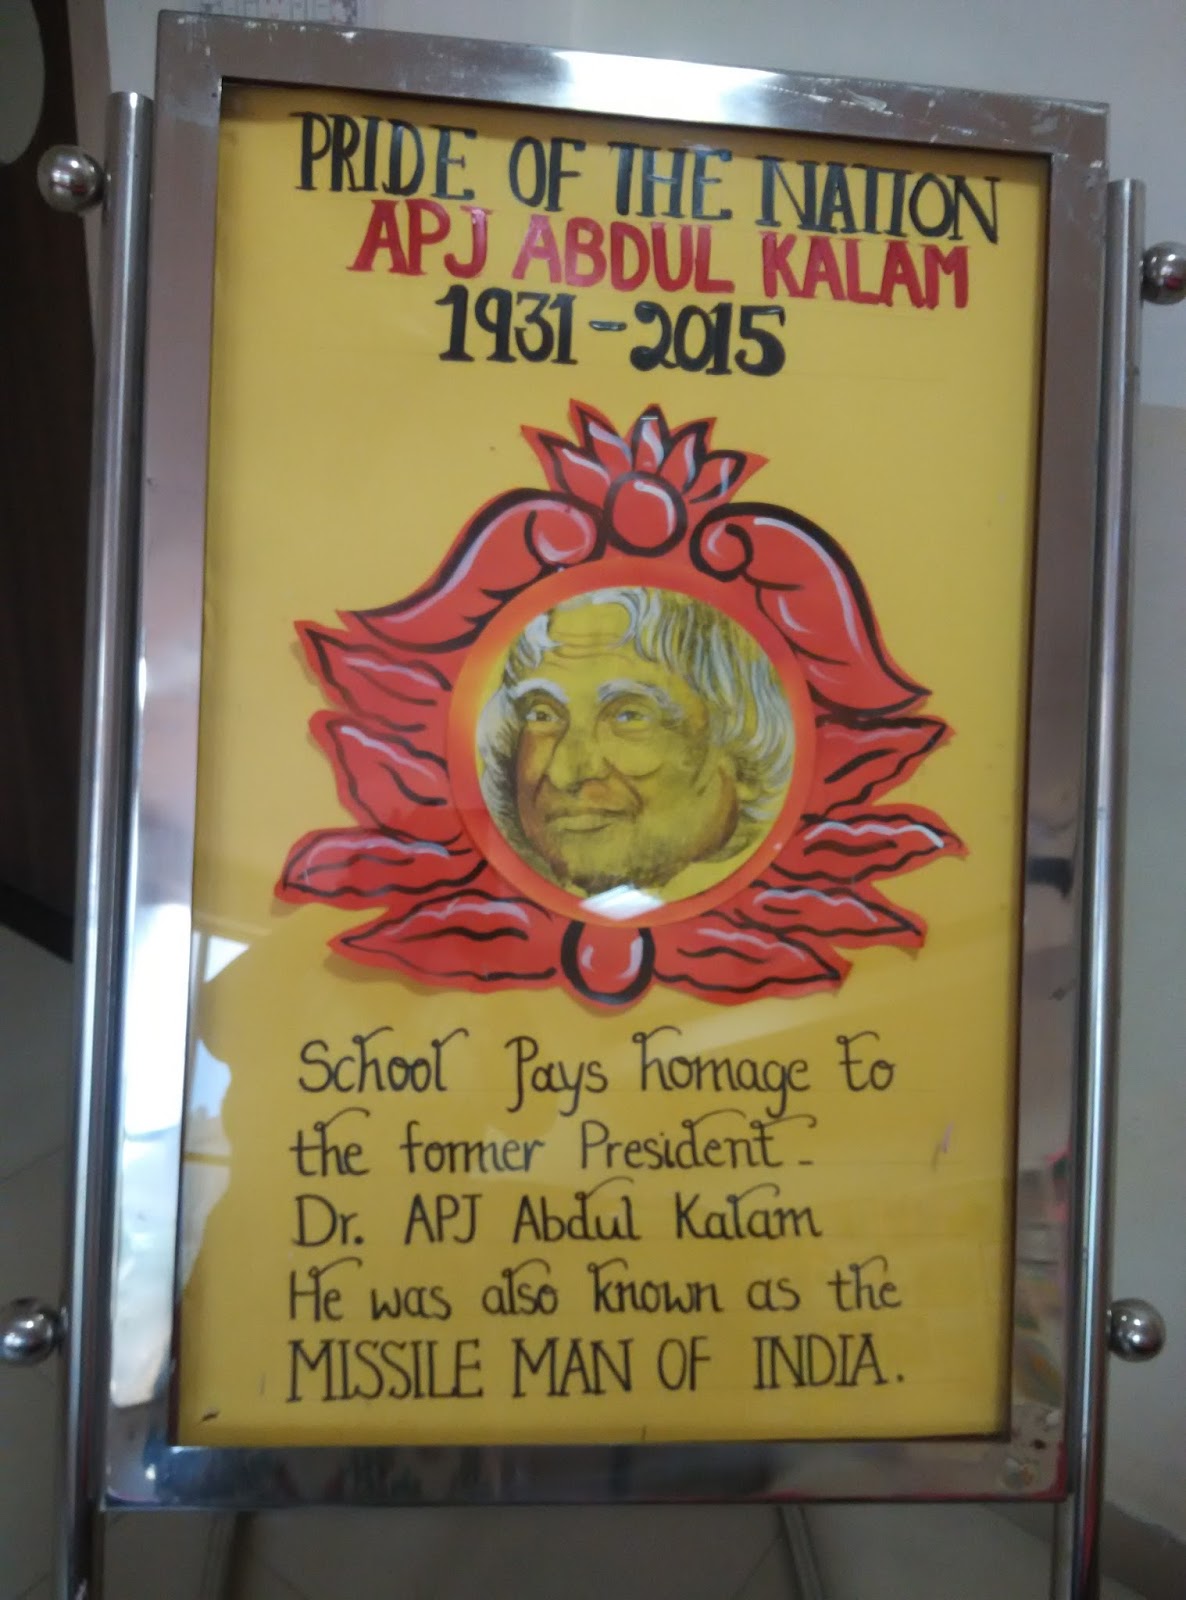 PRIDE OF THE NATION
APJ ABDUL KALAM
1931-2015
School Pays homage to
the former President -
Dr. APJ Abdul Kalam
He was also known as the
MISSILE MAN OF INDIA.